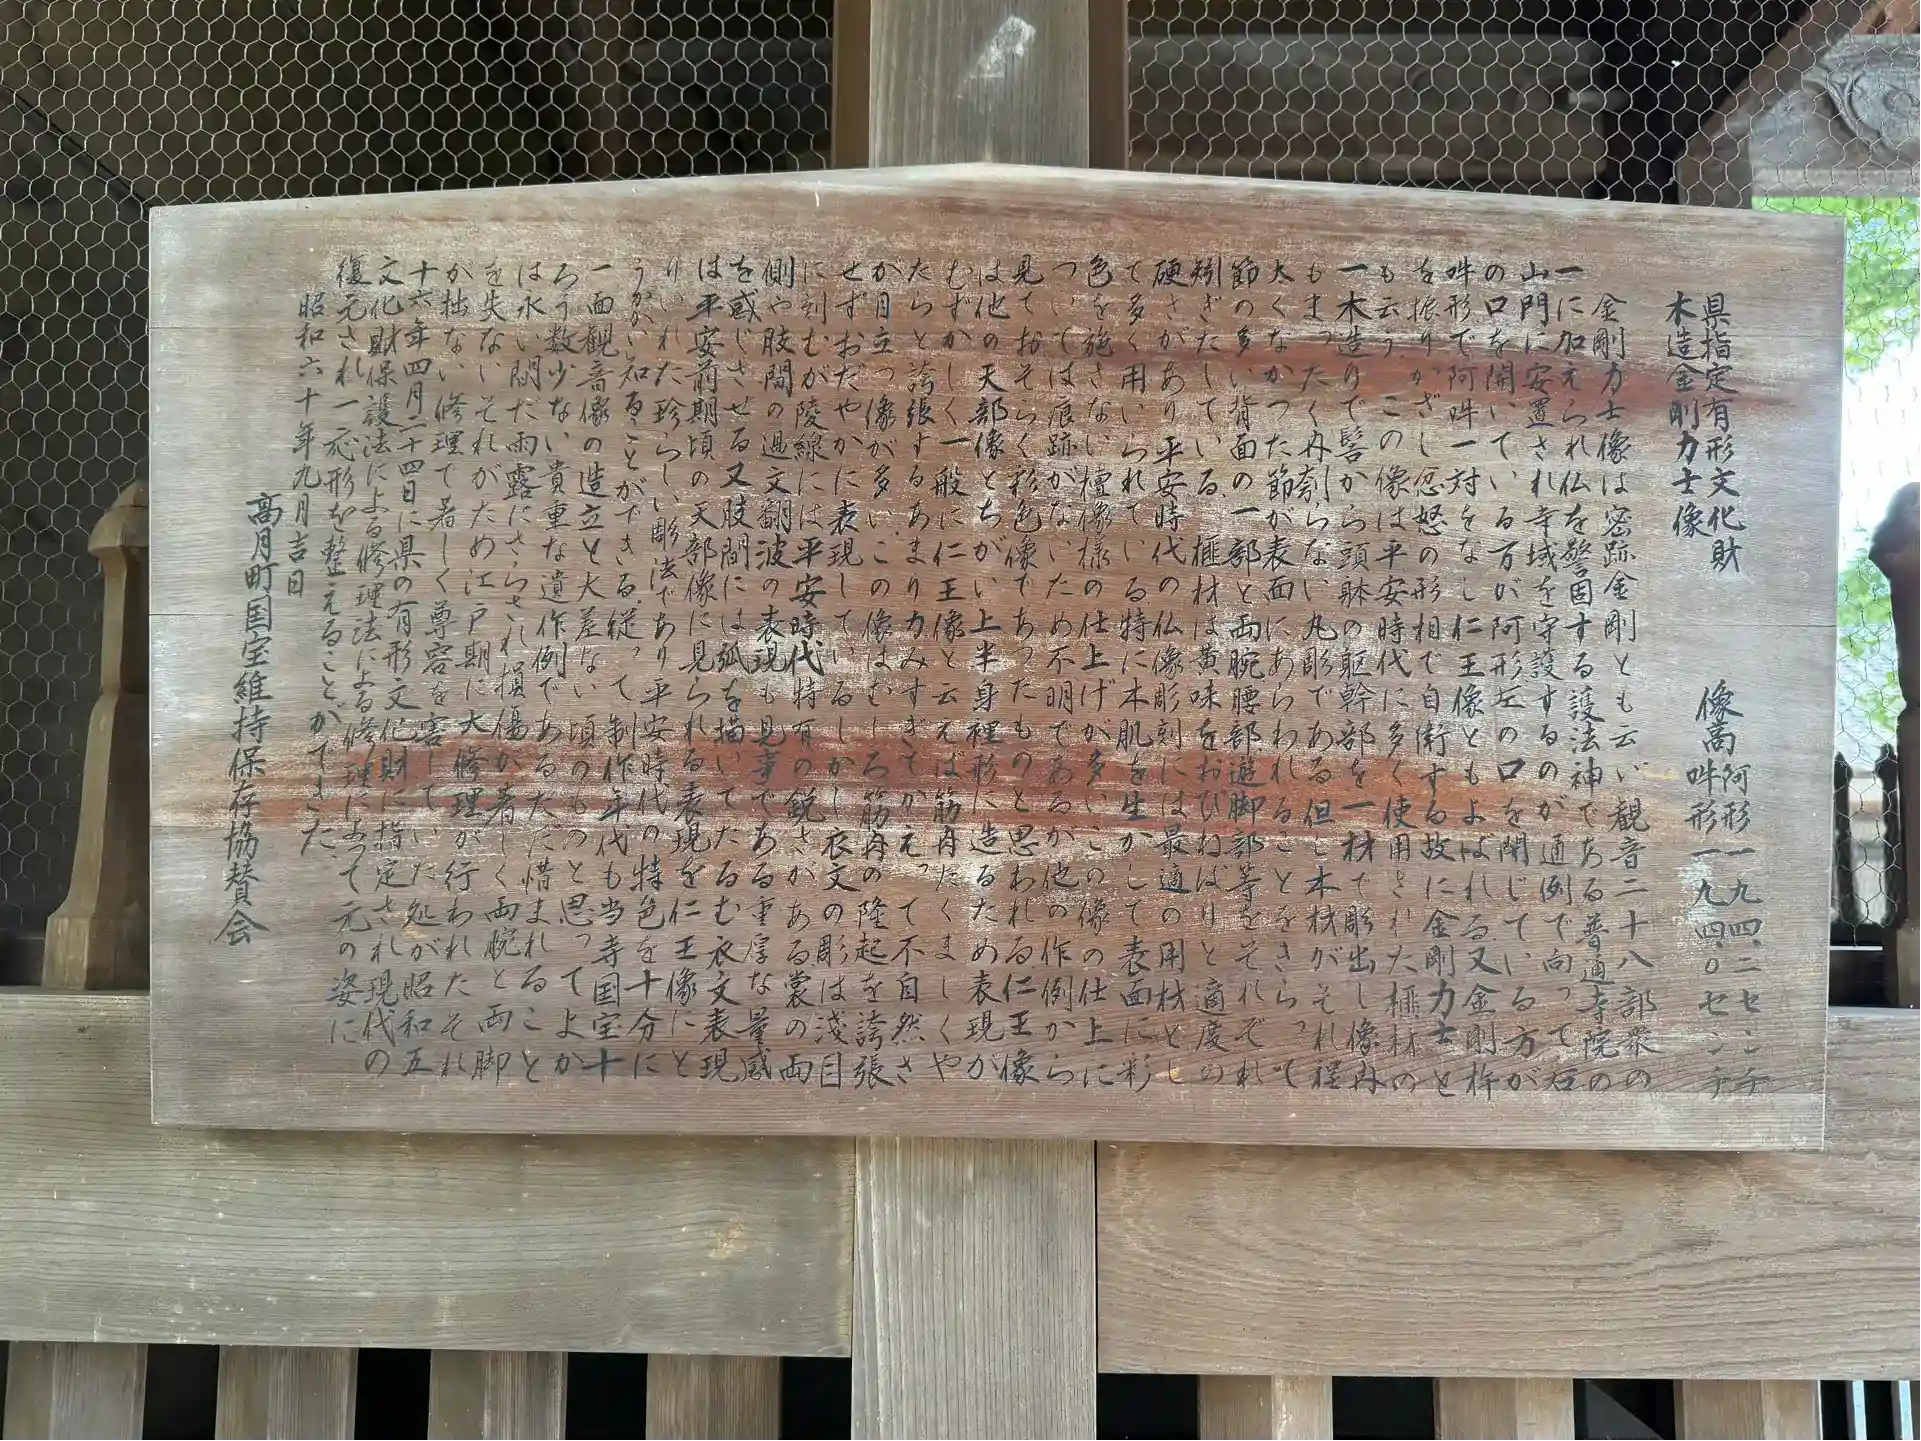 県指定有形文化財
木造金剛力士像
像高 阿形 一九四、二センチ
吽形 一九四、〇センチ
金剛力士像は密跡金剛とも云い観音二十八部衆の
一に加えられ仏を警固する護法神である普通寺院の
山門に安置され寺域を守護するのが通例で向って右
の口を開いている方が阿形左の口を閉じている方が
吽形で阿吽一対をなし仁王像ともよばれる又金剛杵
を振りかざし忿怒の形相で自衛する故に金剛力士と
も云う、この像は平安時代に多く使用された榧材の
一木造りで髻から頭躰の躯幹部を一材で彫出し像内
もまったく内刳らない丸彫である但し木材がそれ程
太くなかつた節が表面にあらわれることをきらって
節の多い背面の一部と両腕腰部遊脚部等をそれぞれ
矧ぎたしている、榧材は黄味をおびねばりと適度の
硬さがあり平安時代の仏像彫刻には最適の用材とし
て多く用いられている特に木肌を生かして表面に彩
色を施さない檀像様の仕上げが多いこの像の仕上に
ついては痕跡がないため不明であるか他の作例から
見ておそらく彩色像であつたものと思われる仁王像
は他の天部像とちがい上半身裡形に造るため表現が
むずかしく一般に仁王像と云えば筋肉たくましくや
たらと誇張するあまり力みすぎてかえって不自然さ
が目立つ像が多いこの像はむしろ筋肉の隆起を誇張
せずおだやかに表現しているしかし衣文の彫は浅目
に刻むが陵線には平安時代特有の鋭さかある裳の両
側や肢間の過文翻波の表現も見事である重厚な量感
を感じさせる又肢間には弧を描いてたるむ衣文表現
は平安前期頃の天部像に見られる表現を仁王像にと
りいれた珍らしい彫法であり平安時代の特色を十分に
うかがい知ることができる従って制作年代も当寺国宝十
一面観音像の造立と大差ない頃のものと思ってよか
ろう数少ない貴重な遺作例であるただ惜まれること
は永い間だ雨露にさらされ損傷か著しく両腕と両脚
を失ないそれがため江戸期に大修理が行われたそれ
が拙ない修理で著しく尊容を害していた処が昭和五
十六年四月二十四日に県の有形文化財に指定され現代の
文化財保護法による修理法による修理によって元の姿に
復元され一応形を整えることができた
昭和六十年九月吉日
高月町国宝維持保存協賛会